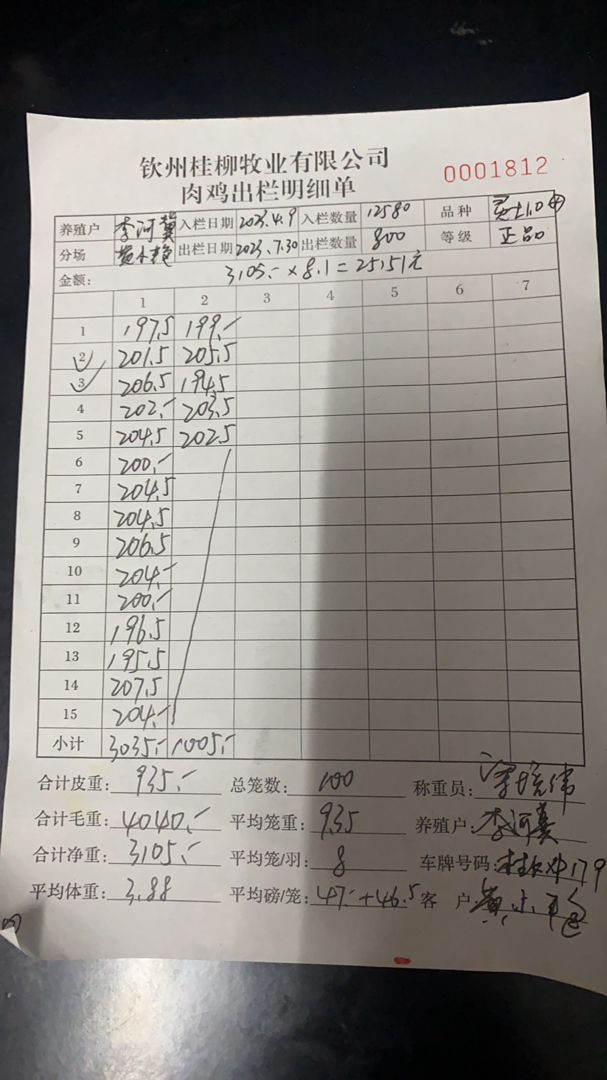 钦州桂柳牧业有限公司
肉鸡出栏明细单
0001812
养殖户 李河冀 入栏日期 2023.4.9 入栏数量 12580 品种
分场 出栏日期 2023.7.30 出栏数量 800 等级 正品
金额: 3105.- × 8.1 = 25151元
1 2 3 4 5 6 7
1 197.5 199.-
2 201.5 205.5
3 206.5 194.5
4 202.- 203.5
5 204.5 202.5
6 200.-
7 204.5
8 204.5
9 206.5
10 204.-
11 200.-
12 196.5
13 195.5
14 207.5
15 204.-
小计 3035.- 1005.-
合计皮重: 935.- 总笼数: 100 称重员:
合计毛重: 4040.- 平均笼重: 9.35 养殖户: 李河冀
合计净重: 3105.- 平均笼/羽: 8 车牌号码: 179
平均体重: 3.88 平均磅/笼: 47.-+46.5 客户: 黄